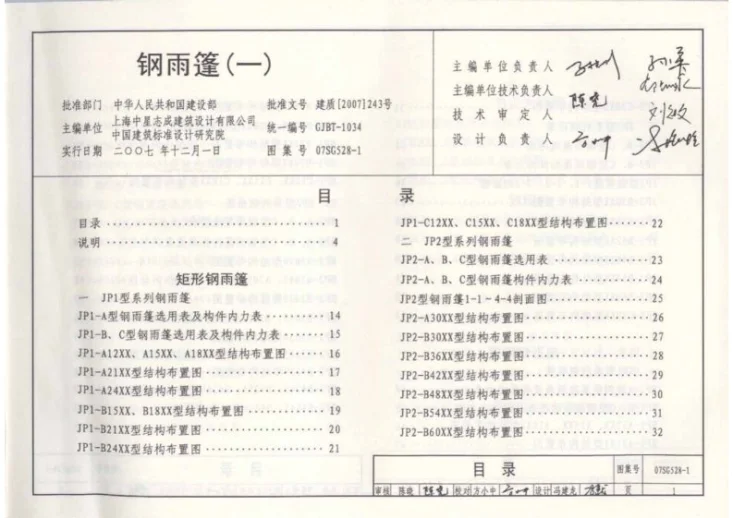 钢雨篷(一)
批准部门 中华人民共和国建设部 批准文号 建质[2007]243号
主编单位 上海中星志成建筑设计有限公司 中国建筑标准设计研究院 统一编号 GJBT-1034
实行日期 二〇〇七年十二月一日 图集号 07SG528-1
主编单位负责人
主编单位技术负责人
技术审定人
设计负责人
目 录
目录 1
说明 4
矩形钢雨篷
一 JP1型系列钢雨篷
JP1-A型钢雨篷选用表及构件内力表 14
JP1-B、C型钢雨篷选用表及构件内力表 15
JP1-A12XX、A15XX、A18XX型结构布置图 16
JP1-A21XX型结构布置图 17
JP1-A24XX型结构布置图 18
JP1-B15XX、B18XX型结构布置图 19
JP1-B21XX型结构布置图 20
JP1-B24XX型结构布置图 21
JP1-C12XX、C15XX、C18XX型结构布置图 22
二 JP2型系列钢雨篷
JP2-A、B、C型钢雨篷选用表 23
JP2-A、B、C型钢雨篷构件内力表 24
JP2型钢雨篷1-1~4-4剖面图 25
JP2-A30XX型结构布置图 26
JP2-B30XX型结构布置图 27
JP2-B36XX型结构布置图 28
JP2-B42XX型结构布置图 29
JP2-B48XX型结构布置图 30
JP2-B54XX型结构布置图 31
JP2-B60XX型结构布置图 32
目录 图集号 07SG528-1
审核 陈晓 校对 方小中 设计 冯建龙 页 1